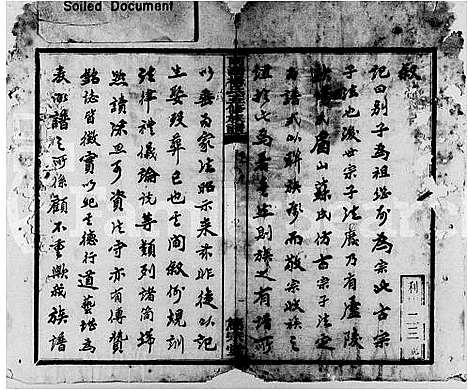 Soiled Document
敘
記曰別子為祖繼別為宗此古宗
子法也後世宗子法廢乃有廬陵
歐陽氏眉山蘇氏仿古宗子法定
為譜式以聯族誼而敬宗收族之
為年則族之有譜所
以垂為家法昭示來茲非徒以記
生娶歿葬已也其間敘例規訓
法律禮儀論說等類列諸簡端
讀深思可資法守亦有傳贊
誌皆徵實以紀其德行道藝為
表譜之所係顧不重歟我族譜
利 二三